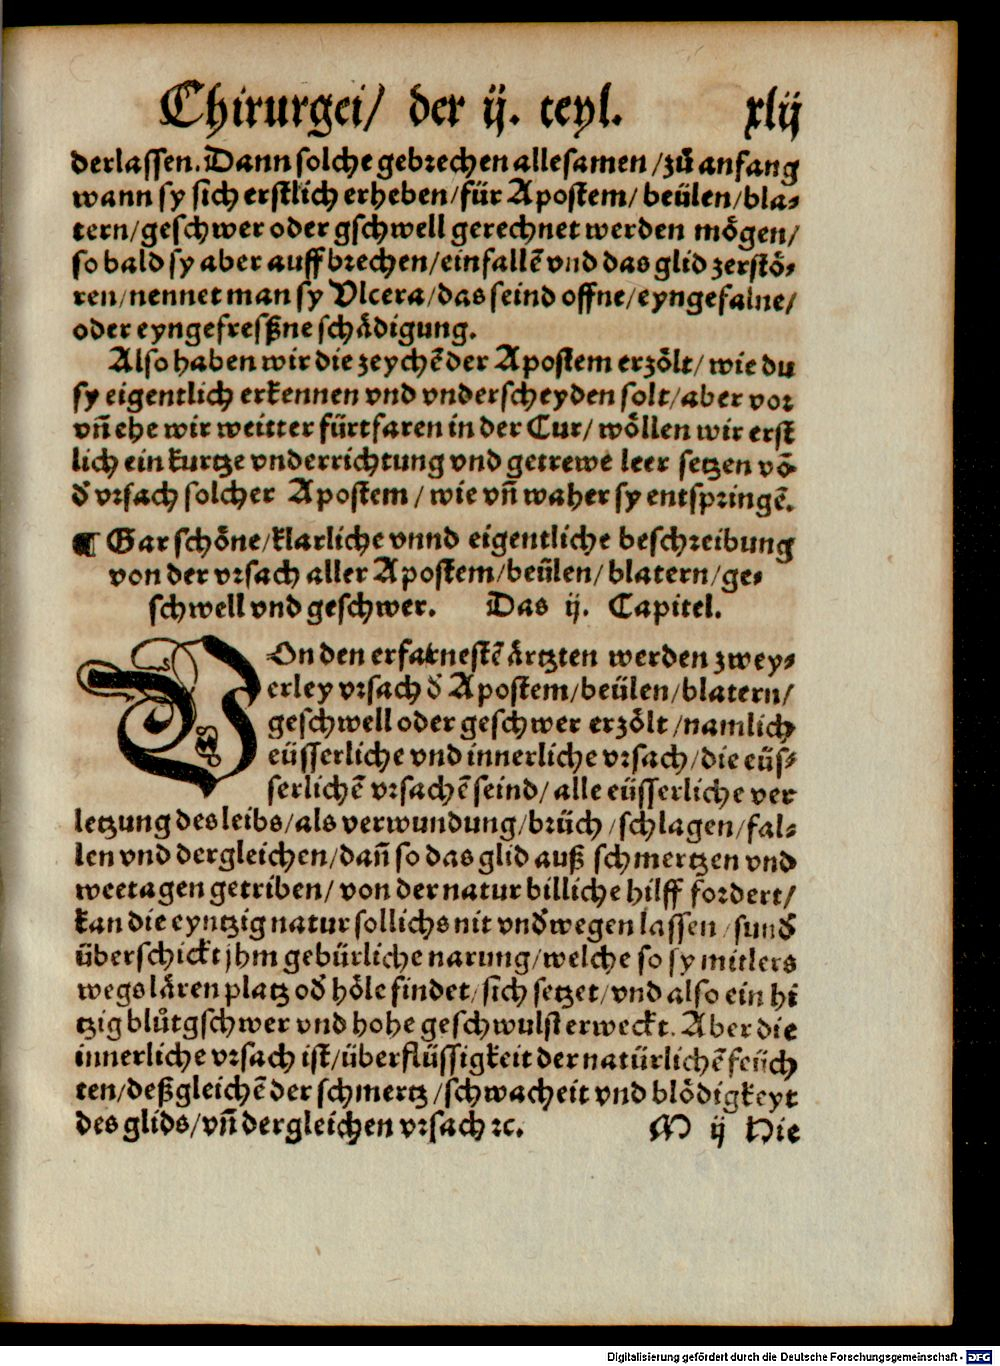 Chirurgei/ der ij. teyl. xlij
derlassen. Dann solche gebrechen allesamen/zů anfang
wann sy sich erstlich erheben/für Apostem/ beülen/bla⸗
tern/geschwer oder gschwell gerechnet werden mögen/
so bald sy aber auffbrechen/einfallē vnd das glid zerstö⸗
ren/nennet man sy Vlcera/das seind offne/eyngefalne/
oder eyngefresßne schädigung.
Also haben wir die zeychē der Apostem erzölt/ wie du
sy eigentlich erkennen vnd vnderscheyden solt/aber vor
vñ ehe wir weitter fürtfaren in der Cur/ wöllen wir erst
lich ein kurtze vnderrichtung vnd getrewe leer setzen vō
d̕ vrsach solcher Apostem/ wie vñ waher sy entspringē.
¶ Gar schöne/klarliche vnnd eigentliche beschreibung
von der vrsach aller Apostem/beülen/ blatern/ge⸗
schwell vnd geschwer. Das ij. Capitel.
VOn den erfarnestē ärtzten werden zwey⸗
erley vrsach d̕ Apostem/beülen/blatern/
geschwell oder geschwer erzölt/namlich
eüsserliche vnd innerliche vrsach/die eüs⸗
serlichē vrsachē seind/ alle eüsserliche ver
letzung des leibs/als verwundung/brüch/schlagen/fal⸗
len vnd dergleichen/dañ so das glid auß schmertzen vnd
weetagen getriben/ von der natur billiche hilff fordert/
kan die eyntzig natur sollichs nit vnd̕wegen lassen/sund̕
überschickt jhm gebürliche narung/welche so sy mitlers
wegs lären platz od̕ höle findet/sich setzet/vnd also ein hi
tzig blůtgschwer vnd hohe geschwulst erweckt. Aber die
innerliche vrsach ist/überflüssigkeit der natürlichē feüch
ten/deßgleichē der schmertz/schwacheit vnd blödigkeyt
des glids/vñ dergleichen vrsach ꝛc. M ij Die
Digitalisierung gefördert durch die Deutsche Forschungsgemeinschaft - DFG